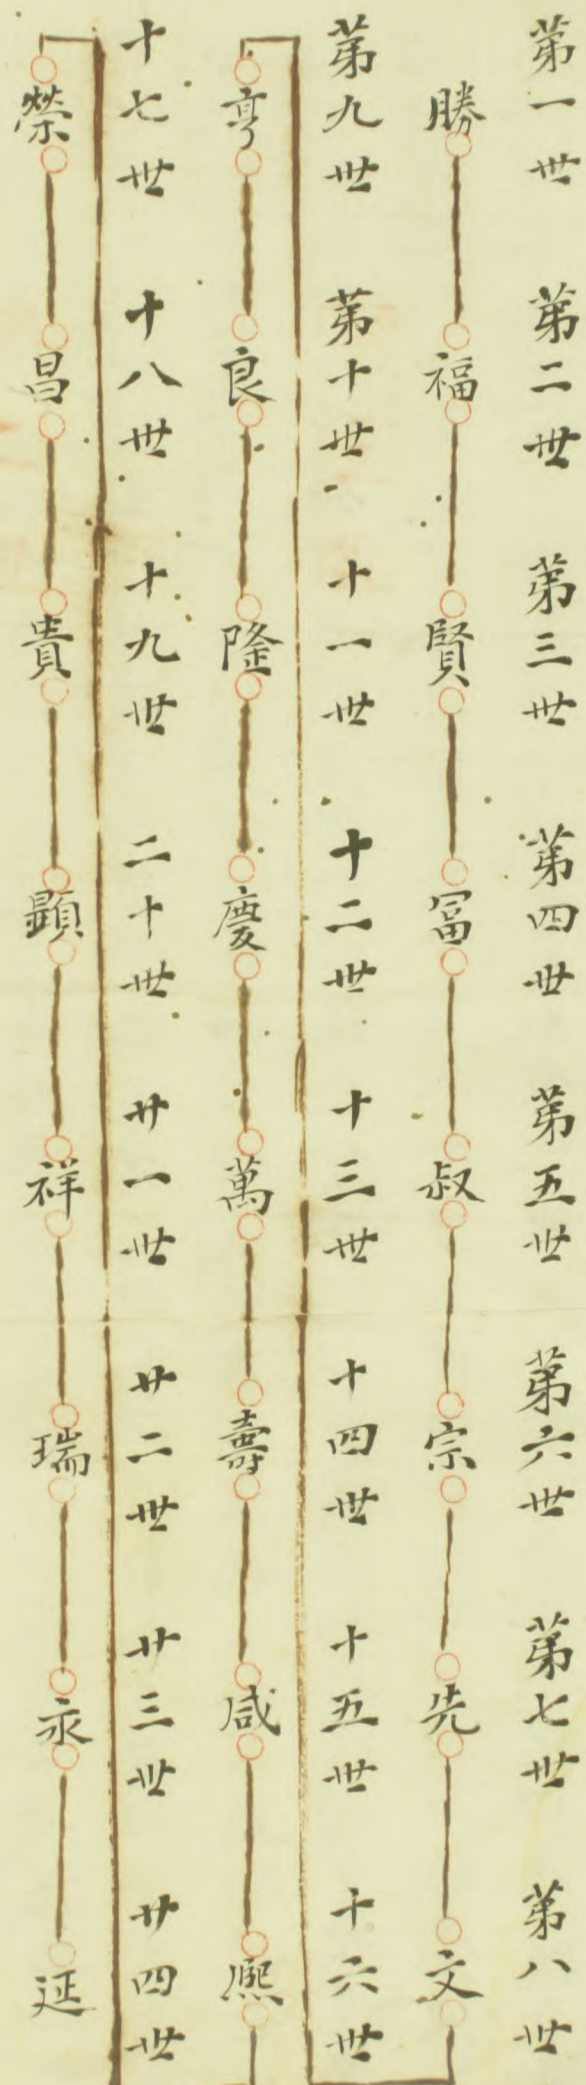 第一世 第二世 第三世 第四世 第五世 第六世 第七世 第八世
勝 福 賢 冨 叔 宗 先 文
第九世 第十世 十一世 十二世 十三世 十四世 十五世 十六世
亨 良 隆 慶 萬 壽 咸 熈
十七世 十八世 十九世 二十世 廿一世 廿二世 廿三世 廿四世
榮 昌 貴 顕 祥 瑞 永 延